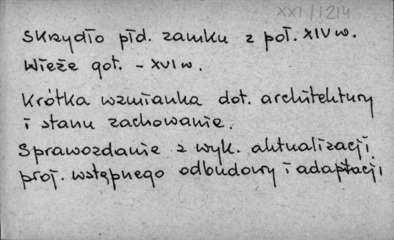 XXI/1214
Skrzydło płd. zamku z poł. XIV w.
Wieże got. – XVI w.
Krótka wzmianka dot. architektury
i stanu zachowanie.
Sprawozdanie z wyk. aktualizacji
proj. wstępnego odbudowy i adaptacji